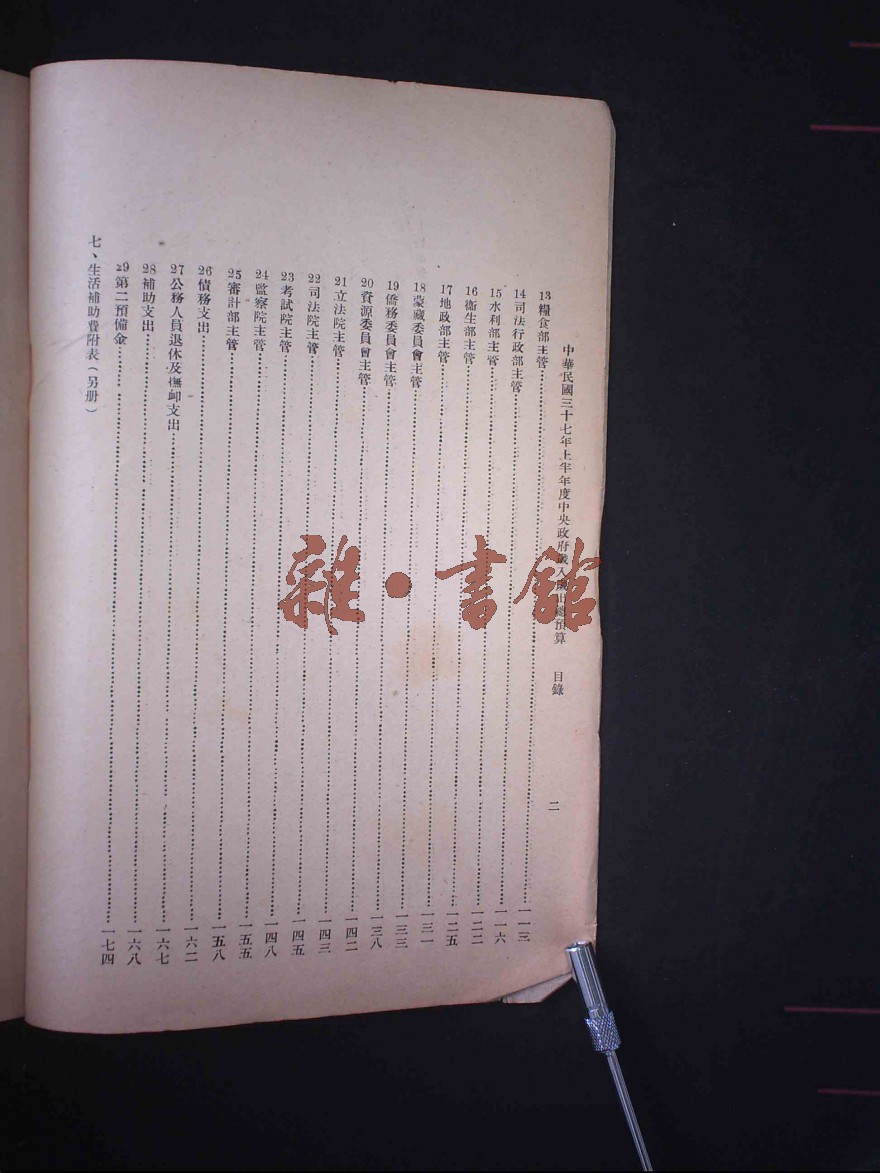 中華民國三十七年上半年度中央政府歲入歲出總預算　目錄　二
13糧食部主管……一一三
14司法行政部主管……一一六
15水利部主管……一二二
16衞生部主管……一二五
17地政部主管……一三一
18蒙藏委員會主管……一三三
19僑務委員會主管……一三八
20資源委員會主管……一四二
21立法院主管……一四三
22司法院主管……一四五
23考試院主管……一四八
24監察院主管……一五五
25審計部主管……一五八
26債務支出……一六二
27公務人員退休及撫卹支出……一六七
28補助支出……一六八
29第二預備金……一七四
七、生活補助費附表（另册）
雜·書館